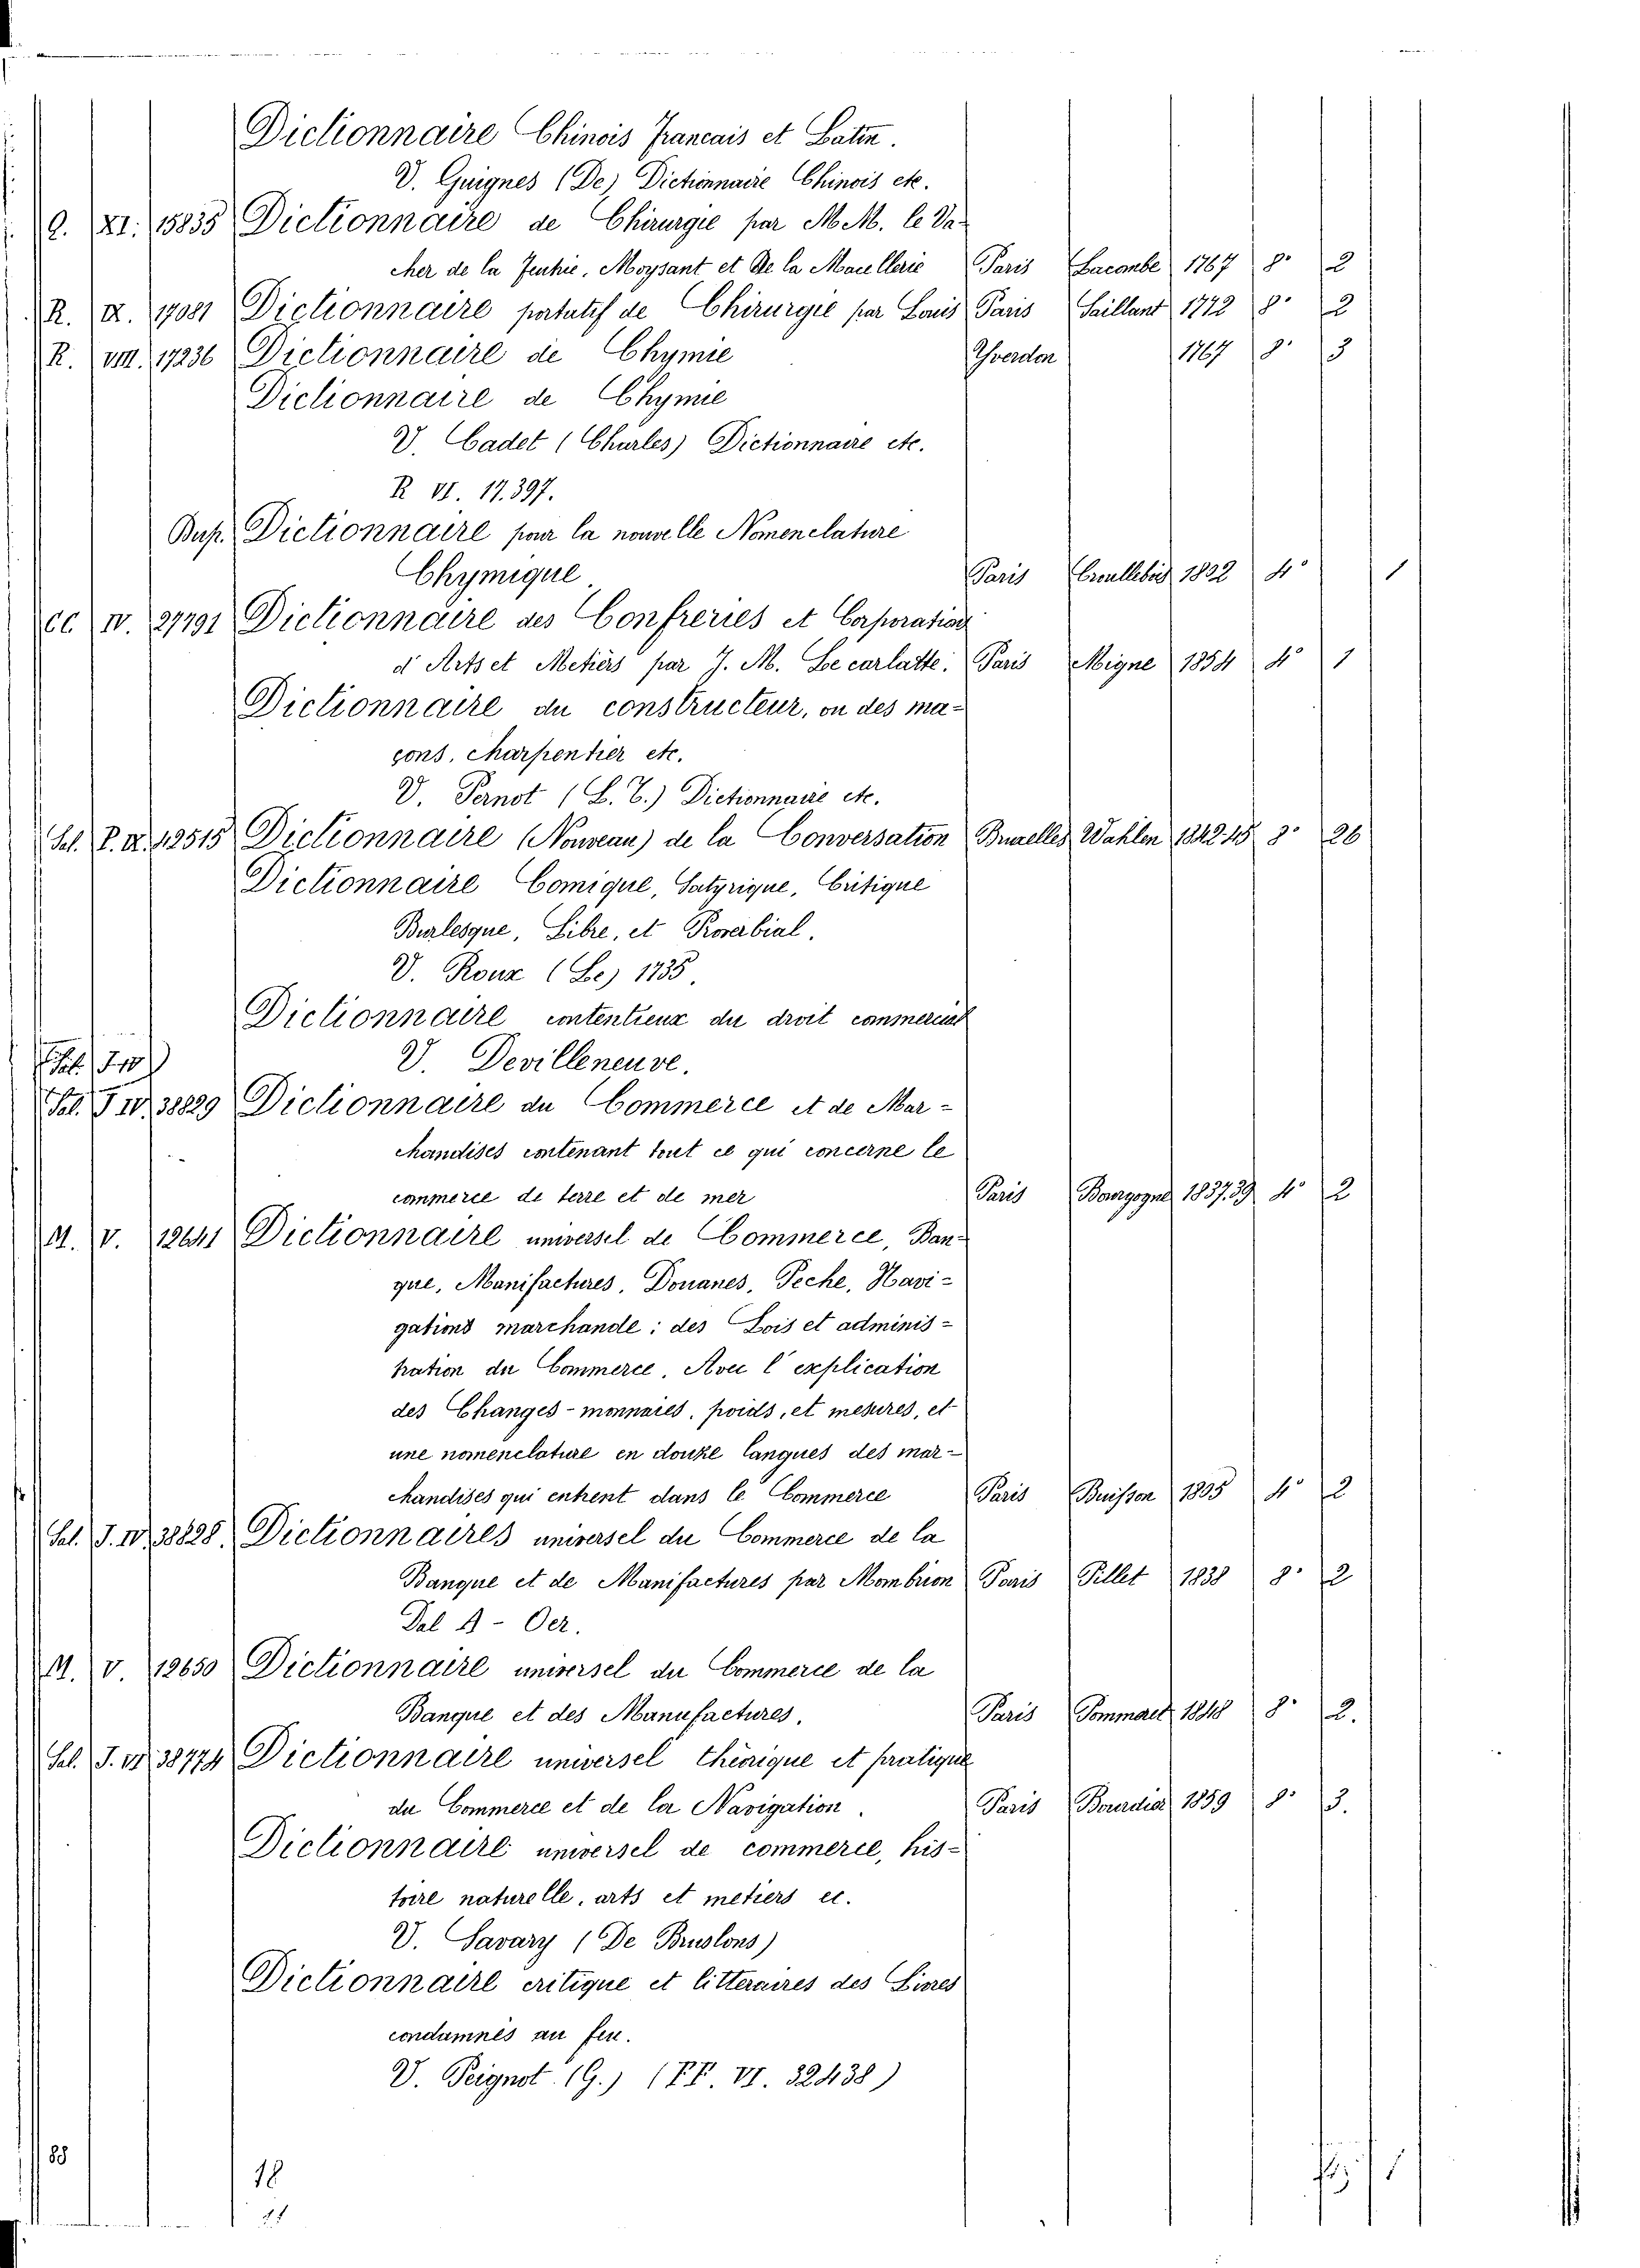 Dictionnaire Chinois Francais et Latin.
V. Guignes (De) Dictionnaire Chinois etc.
Q. XI. 15835 Dictionnaire de Chirurgie par M.M. le Va-
cher de la Feutrie, Moysant et De la Macellerie Paris Lacombe 1767 8° 2
R. IX. 17081 Dictionnaire portatif de Chirurgie par Louis Paris Saillant 1772 8° 2
R. VIII. 17236 Dictionnaire de Chymie Yverdon 1767 8° 3
Dictionnaire de Chymie
V. Cadet (Charles) Dictionnaire etc.
R VI. 17.397.
Bup. Dictionnaire pour la nouvelle Nomenclature
Chymique. Paris Croullebois 1822 4° 1
CC IV. 27791 Dictionnaire des Confreries et Corporation
d'Arts et Metiers par J. M. Lecarlatte. Paris Migne 1854 4° 1
Dictionnaire du constructeur, ou des ma-
çons, Charpentier etc.
V. Pernot (L. T.) Dictionnaire etc.
Sel. P. IX. 12515 Dictionnaire (Nouveau) de la Conversation Bruxelles Wahlen 1842 45 8° 26
Dictionnaire Comique, Satyrique, Critique
Burlesque, Libre, et Proverbial.
V. Roux (Le) 1735.
Dictionnaire contentieux du droit commercial
V. Devilleneuve.
Sel. J. IV. 38829 Dictionnaire du Commerce et de Mar-
chandises contenant tout ce qui concerne le
commerce de terre et de mer Paris Bourgogne 1837.39 4° 2
M. V. 12641 Dictionnaire universel de Commerce, Ban-
que, Manifactures, Douanes, Peche, Navi-
gations marchande: des Lois et adminis-
tration du Commerce. Avec l'explication
des Changes-monnaies, poids, et mesures, et
une nomenclature en douze langues des mar-
chandises qui entrent dans le Commerce Paris Buisson 1805 4° 2
Sel. J. IV. 38828. Dictionnaires universel du Commerce de la
Banque et de Manifactures par Mombrion Paris Pillet 1838 8° 2
Dal A - Oer.
M. V. 12650 Dictionnaire universel du Commerce de la
Banque et des Manufactures. Paris Pommaret 1848 8° 2.
Sel. J. VI. 38774 Dictionnaire universel théorique et pratique
du Commerce et de la Navigation. Paris Bourdier 1859 8° 3.
Dictionnaire universel de commerce, his-
toire naturelle, arts et metiers ec.
V. Savary (De Bruslons)
Dictionnaire critique et litteraires des Livres
condamnés au feu.
V. Peignot (G.) (FF. VI. 32438)
88
18